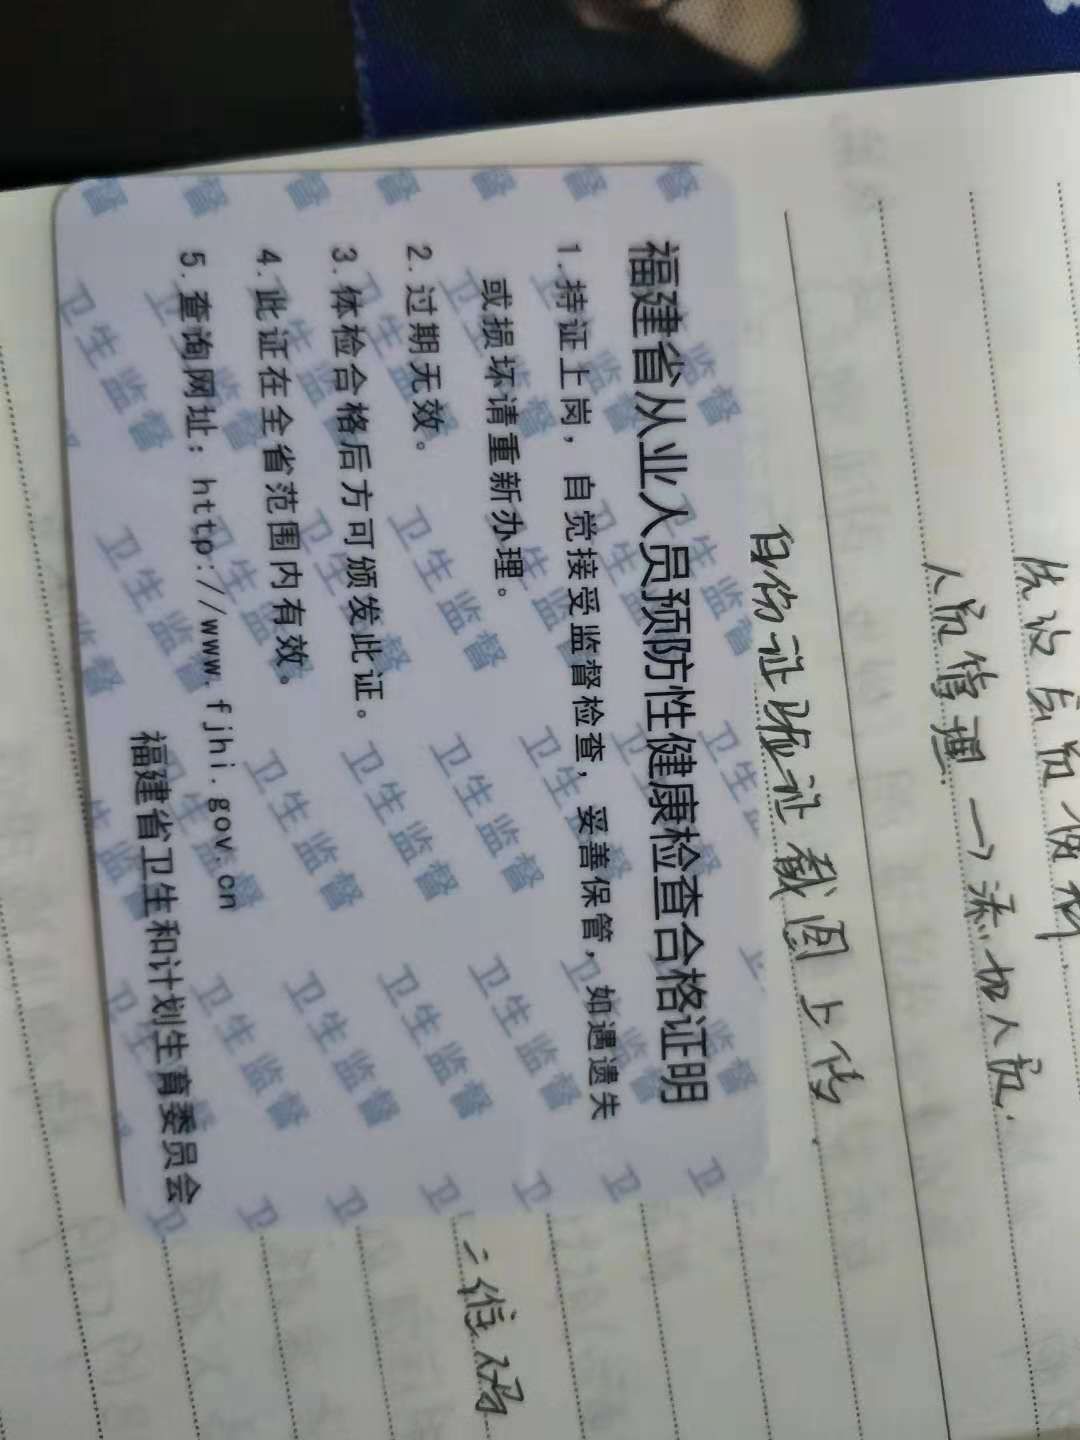 人员管理→添加人员.
身份证验证截图上传.
福建省从业人员预防性健康检查合格证明
1.持证上岗，自觉接受监督检查，妥善保管，如遇遗失
或损坏请重新办理。
2.过期无效。
3.体检合格后方可颁发此证。
4.此证在全省范围内有效。
5.查询网址：http://www.fjhi.gov.cn
福建省卫生和计划生育委员会
卫生监督
二维码